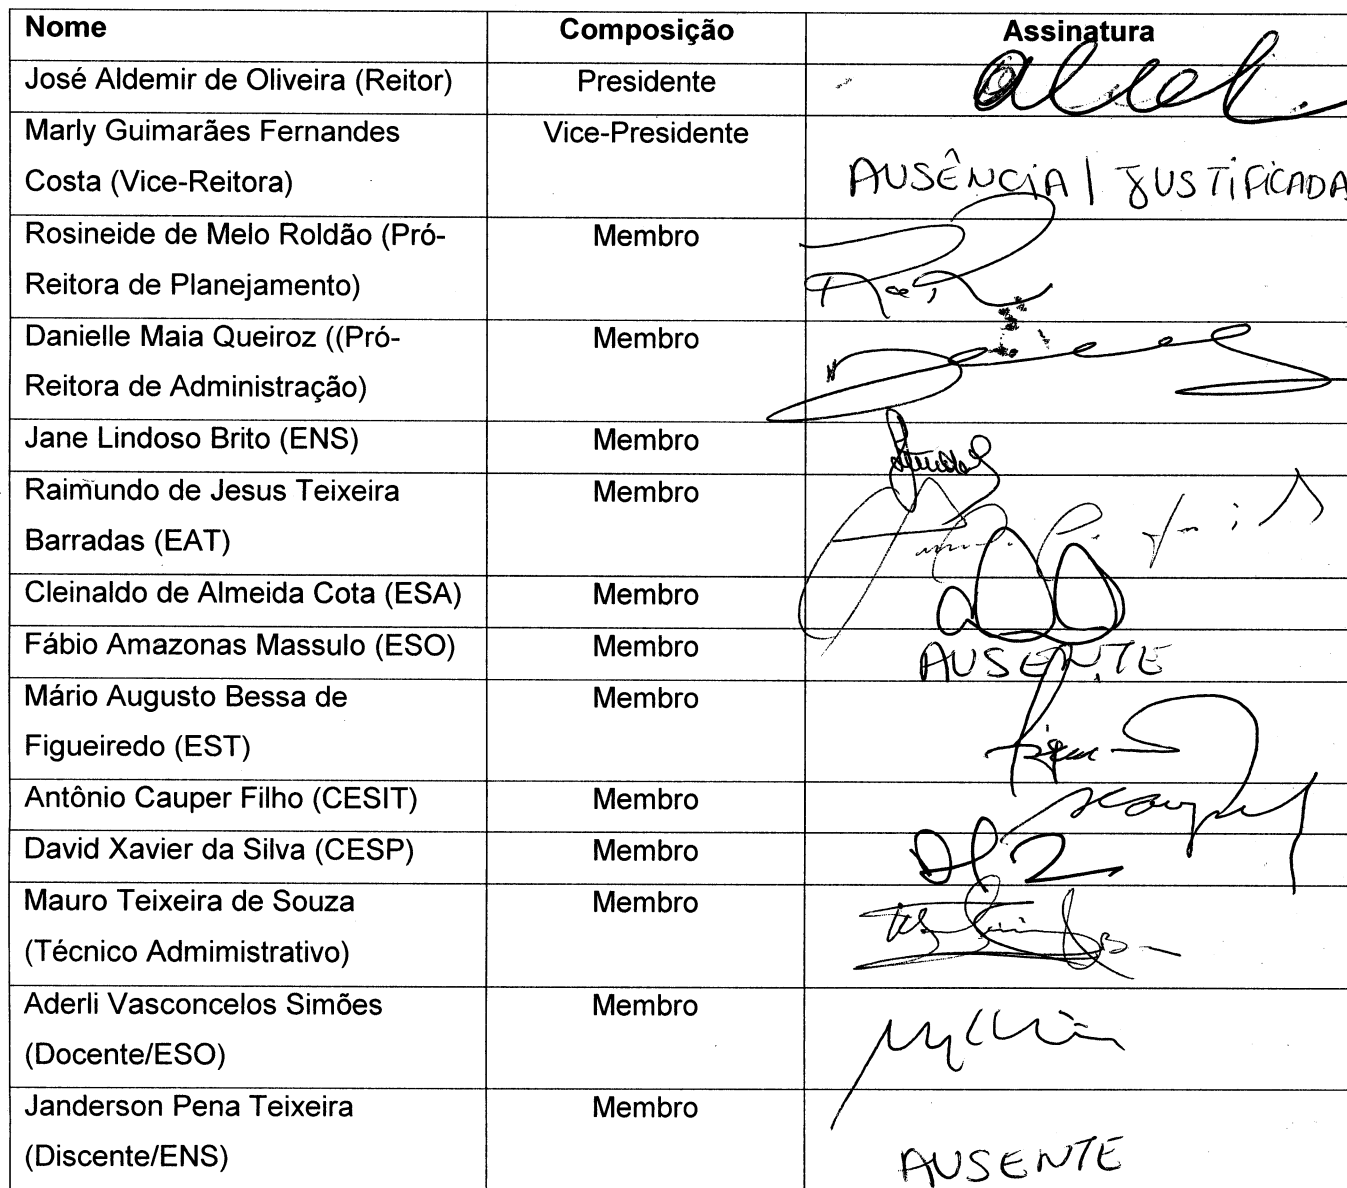 Nome Composição Assinatura
José Aldemir de Oliveira (Reitor) Presidente
Marly Guimarães Fernandes Vice-Presidente
Costa (Vice-Reitora) AUSÊNCIA | JUSTIFICADA
Rosineide de Melo Roldão (Pró- Membro
Reitora de Planejamento)
Danielle Maia Queiroz ((Pró- Membro
Reitora de Administração)
Jane Lindoso Brito (ENS) Membro
Raimundo de Jesus Teixeira Membro
Barradas (EAT)
Cleinaldo de Almeida Cota (ESA) Membro
Fábio Amazonas Massulo (ESO) Membro AUSENTE
Mário Augusto Bessa de Membro
Figueiredo (EST)
Antônio Cauper Filho (CESIT) Membro
David Xavier da Silva (CESP) Membro
Mauro Teixeira de Souza Membro
(Técnico Admimistrativo)
Aderli Vasconcelos Simões Membro
(Docente/ESO)
Janderson Pena Teixeira Membro
(Discente/ENS) AUSENTE